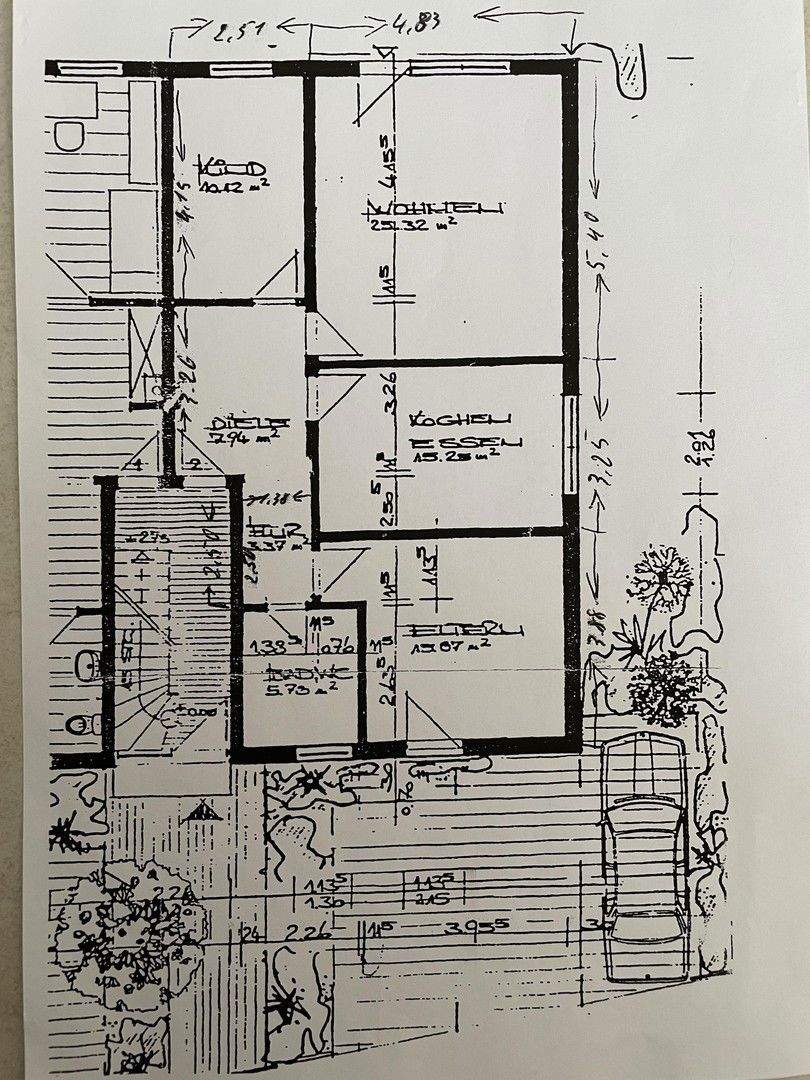 2,51
4,83
KIND
10.12 m²
4,15
4.15⁵
WOHNEN
25.32 m²
5,40
11⁵
3,26
3.26
KOCHEN
ESSEN
15.25 m²
DIELE
7.94 m²
2.01
1.26
3,25
1
2
1,38
2.50⁵
11⁵
FLUR
2,50
2,50
11³⁵
11⁵
3,88
ELTERN
15.87 m²
11⁵
1.38⁵
0.76
11⁵
BAD/WC
5.73 m²
2.63⁵
15 ST.
0.70
2.26
1.13⁵
1.13⁵
1.36
2.15
24
2.26
11⁵
3.95⁵